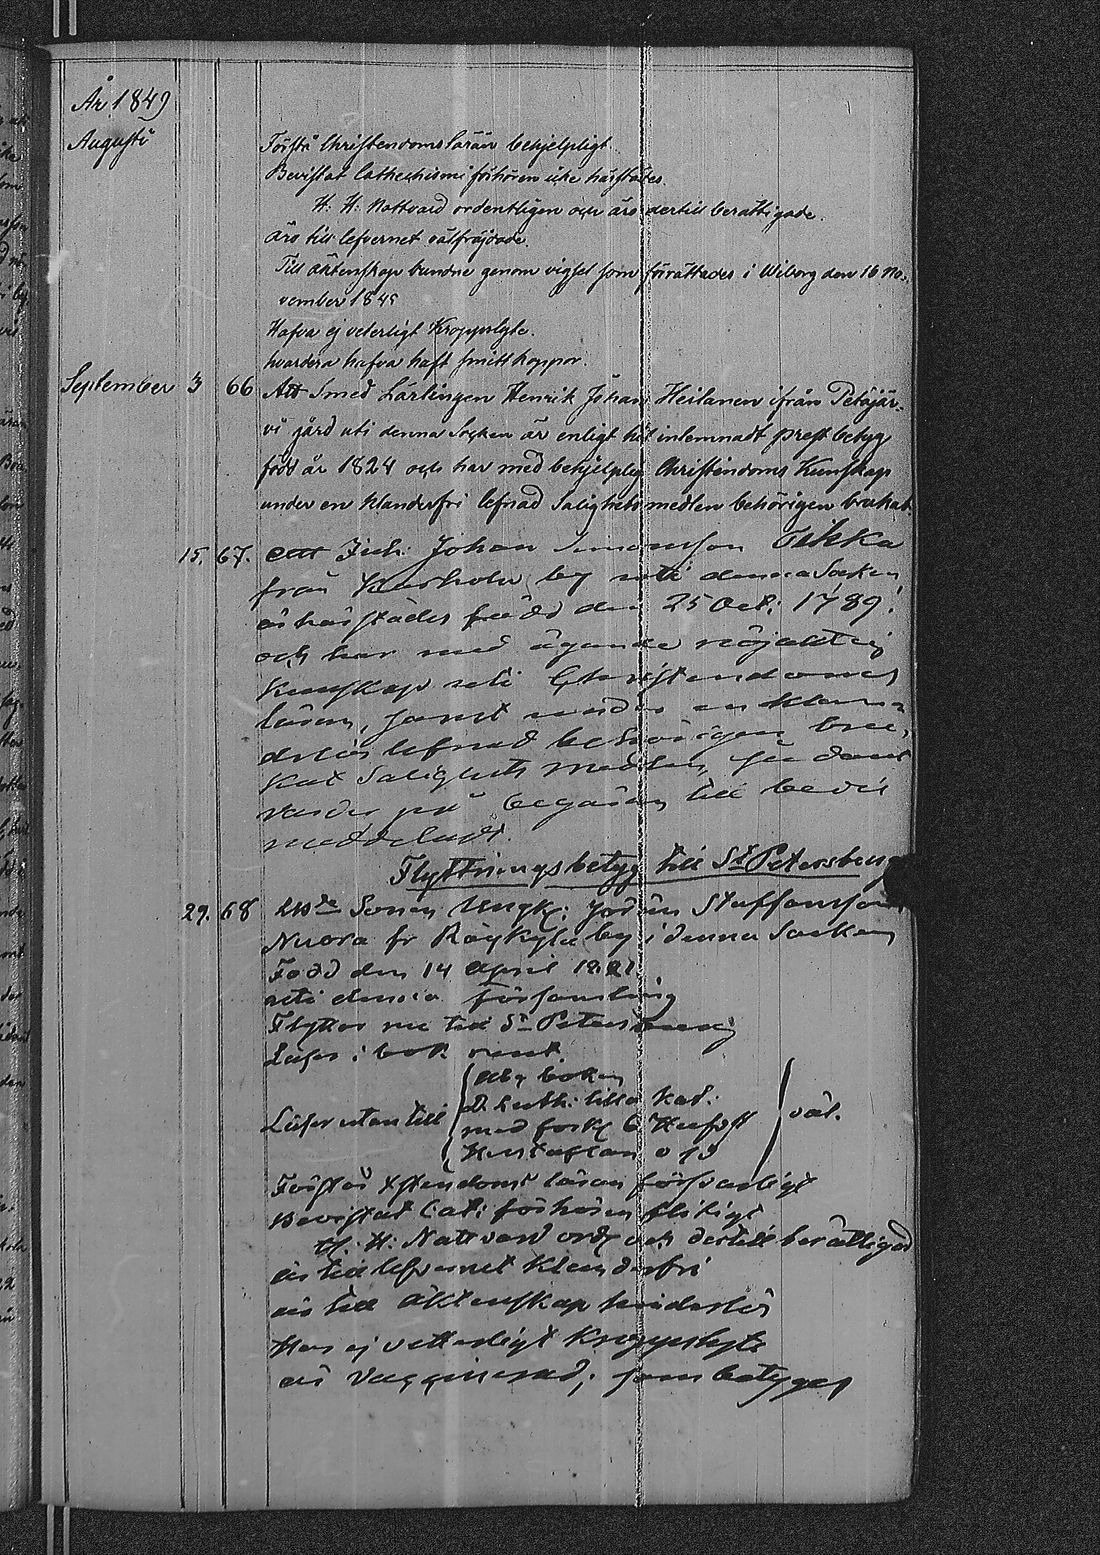 År 1849
Augusti
Förstå Christendomsläran behjelpligt.
Bevistat Cathechismi förhören icke härstädes.
H. H. Nattvard ordentligen och äro dertill berättigade.
Äro till lefvernet välfräjdade.
Till äktenskap bundne genom vigsel som förrättades i Wiborg den 16 No-
vember 1845
Hafva ej veterligt Kroppslyte.
hvardera hafva haft smittkoppor.
September 3 66 Att Smed Lärlingen Henrik Johan Heilanen ifrån Petäjär-
vi gård uti denna Socken är enligt hit inlemnadt prestbetyg
född år 1824 och har med behjelplig Christendoms Kunskap
under en klanderfri lefnad Salighetsmedlen behörigen brukat.
15. 67. Att Johan Tikka
från by uti denna Socken
är härstädes född den 25 Oct: 1789.
och har med ägande nöjaktig
Kunskap uti Christendomens
läran, samt under en klan-
derlös lefnad behörigen bru-
kat Salighets medlen, som
varder på begäran till bevis
meddeladt.
Flyttningsbetyg till St Petersburg
29. 68 Sonen Ungk: Staffansson
Nuora fr by i denna Socken
Född den 14 April
uti denna församling
Flyttar nu till St Petersburg
Läser i bok rent.
Läser utantill
Abc boken
D. Luth: lilla Kat:
med förkl
Hustaflan
väl.
Förstår Xstendoms läran försvarligt
Bevistat Cat: förhören flitigt
H. H. Nattvard ordl och dertill berättigad
är till lefvernet klanderfri
är till äktenskap hinderlös
Har ej vetterligt Kroppslyte
är vaccinerad; som betygas